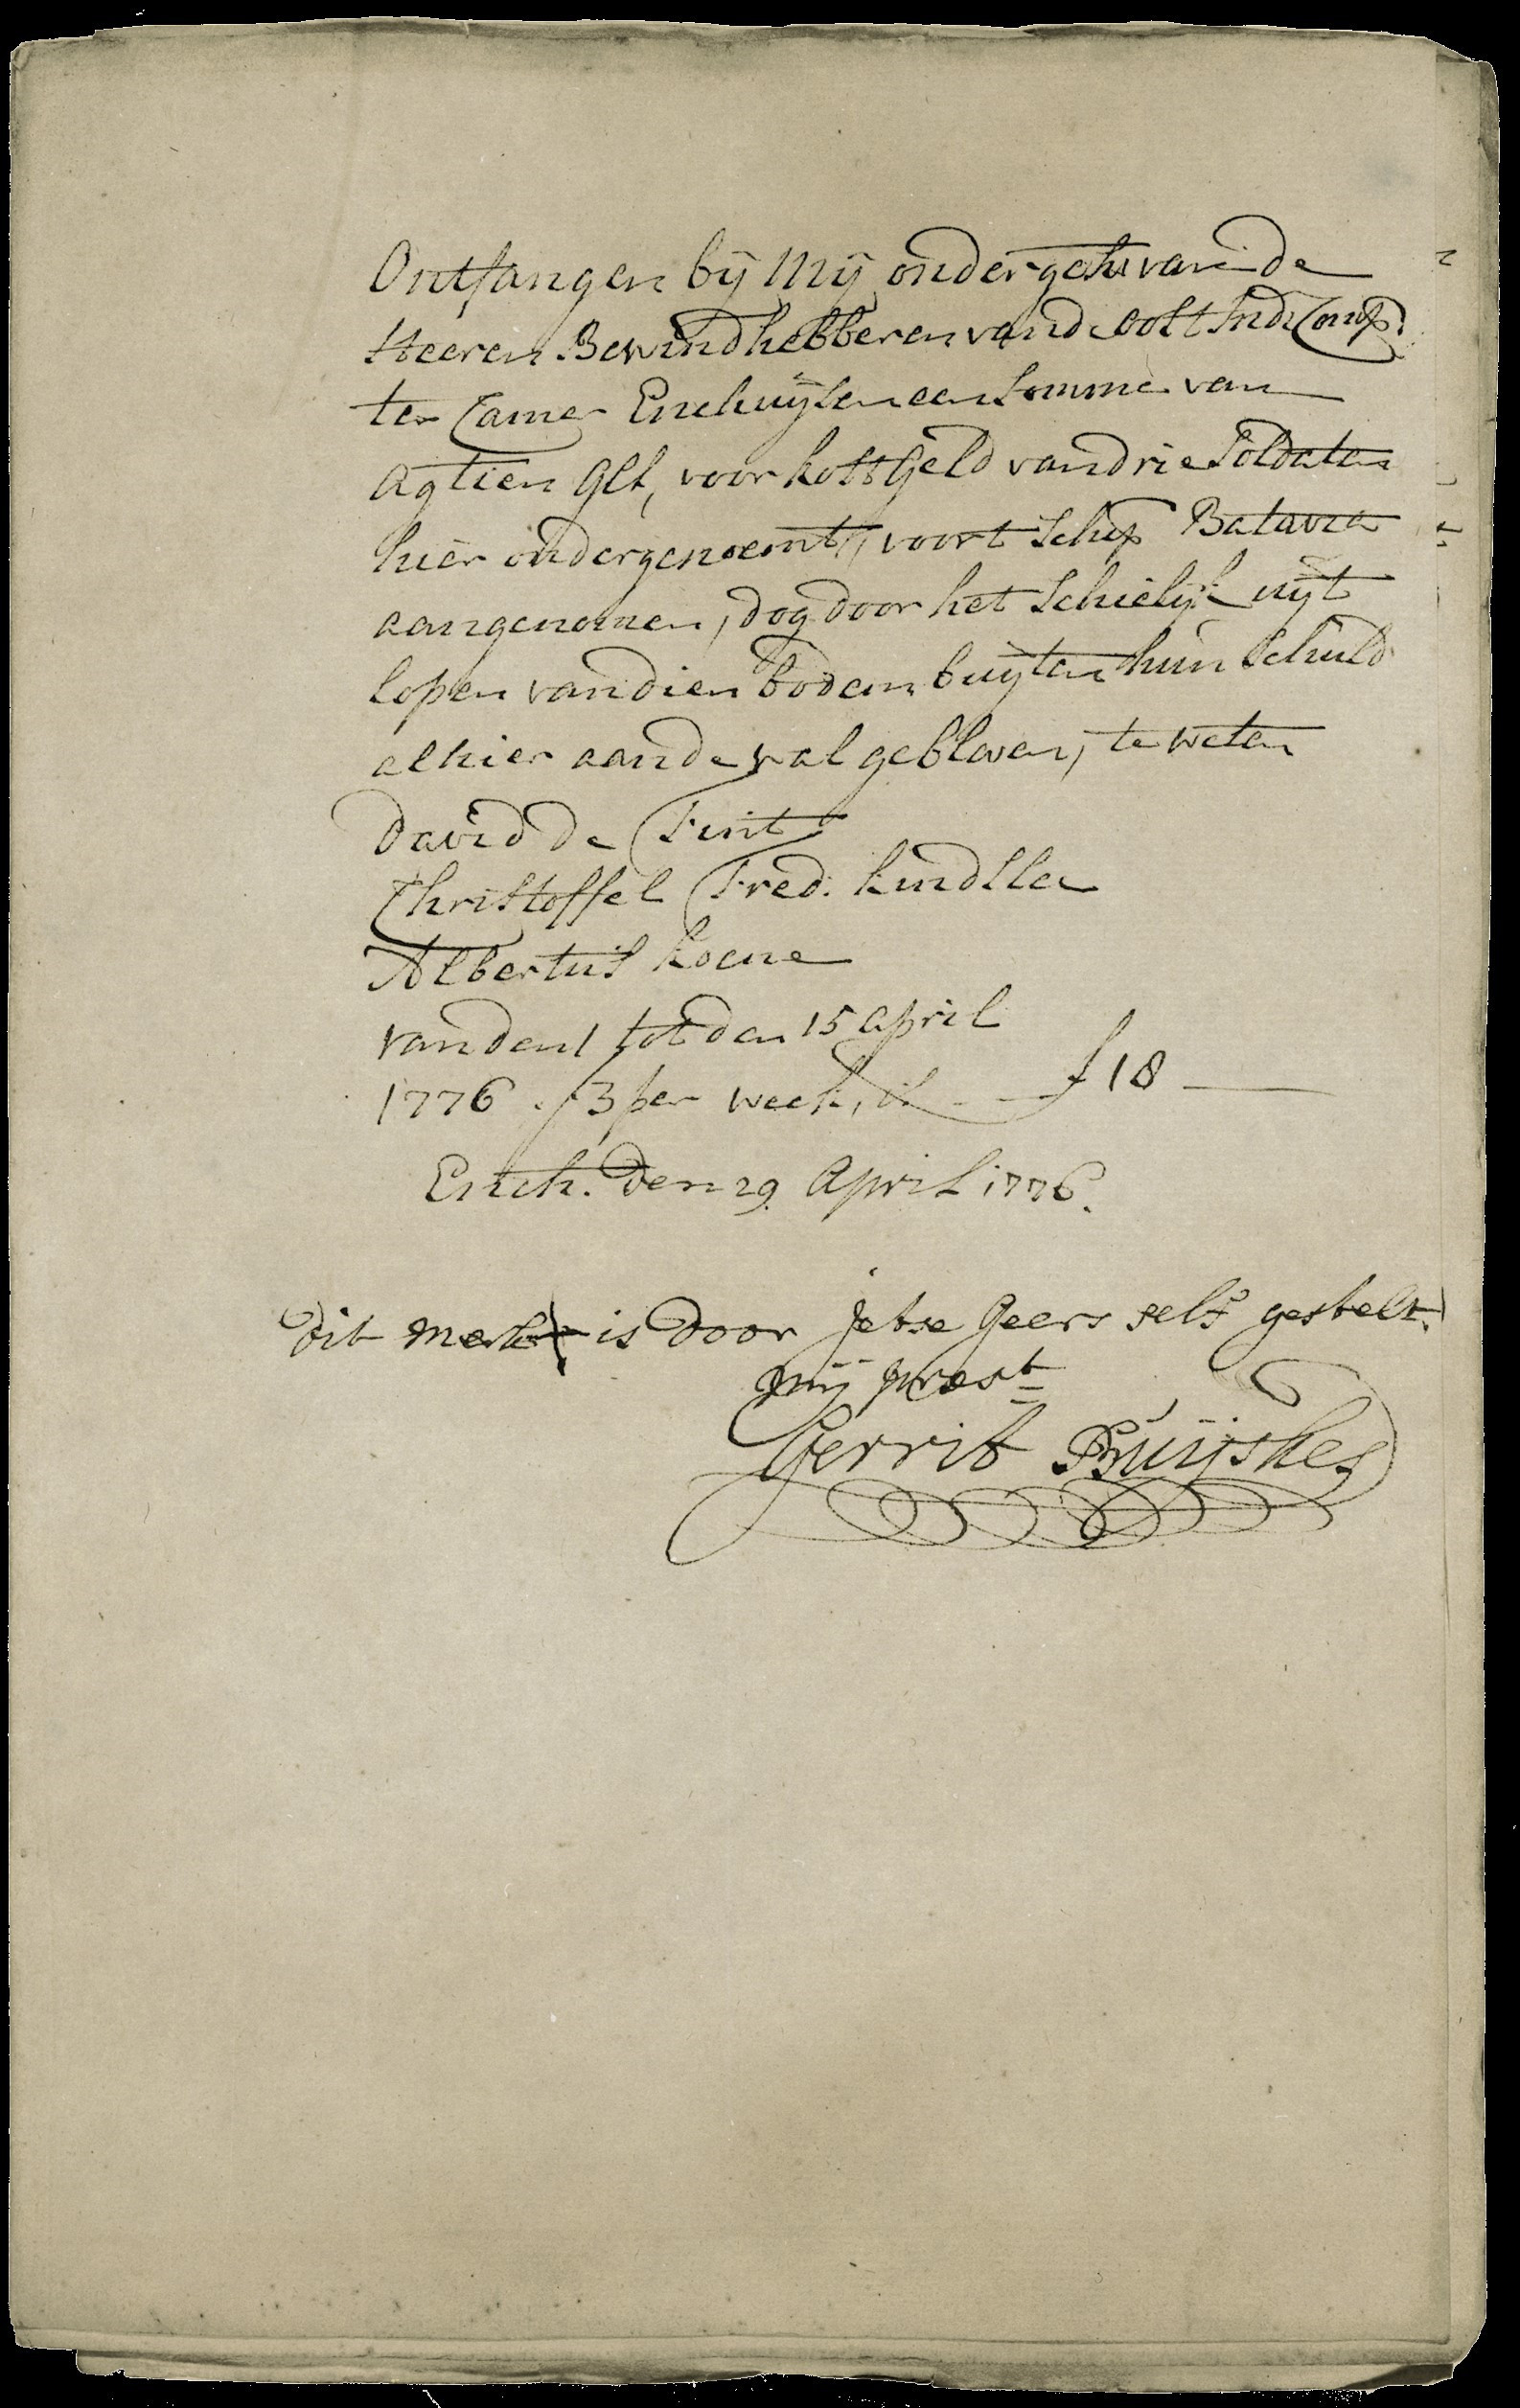 Ontfangen bij Mij ondergesch: van de
Heeren Bewindhebberen vand oost Ind: Comp:
ter Camer Enchuijsen een somme van
Agtien Gls, voor kostgeld van drie Soldaten
hier ondergenoemt, voort Schip Batavia
aangenomen, dog door het schielijk uijt
lopen van dien bodem buijten hun schuld
alhier aan de wal gebleven, te weten
David de Fint
Christoffel Fred. kindsler
Albertus koene
van den 1 tot den 15 april
1776 f 3 per week, is - - f 18 —
Ench. den 29. April 1776.
dit merk is door Jetse Geers self gestelt.
mij præst
Gerrit Pruijskes